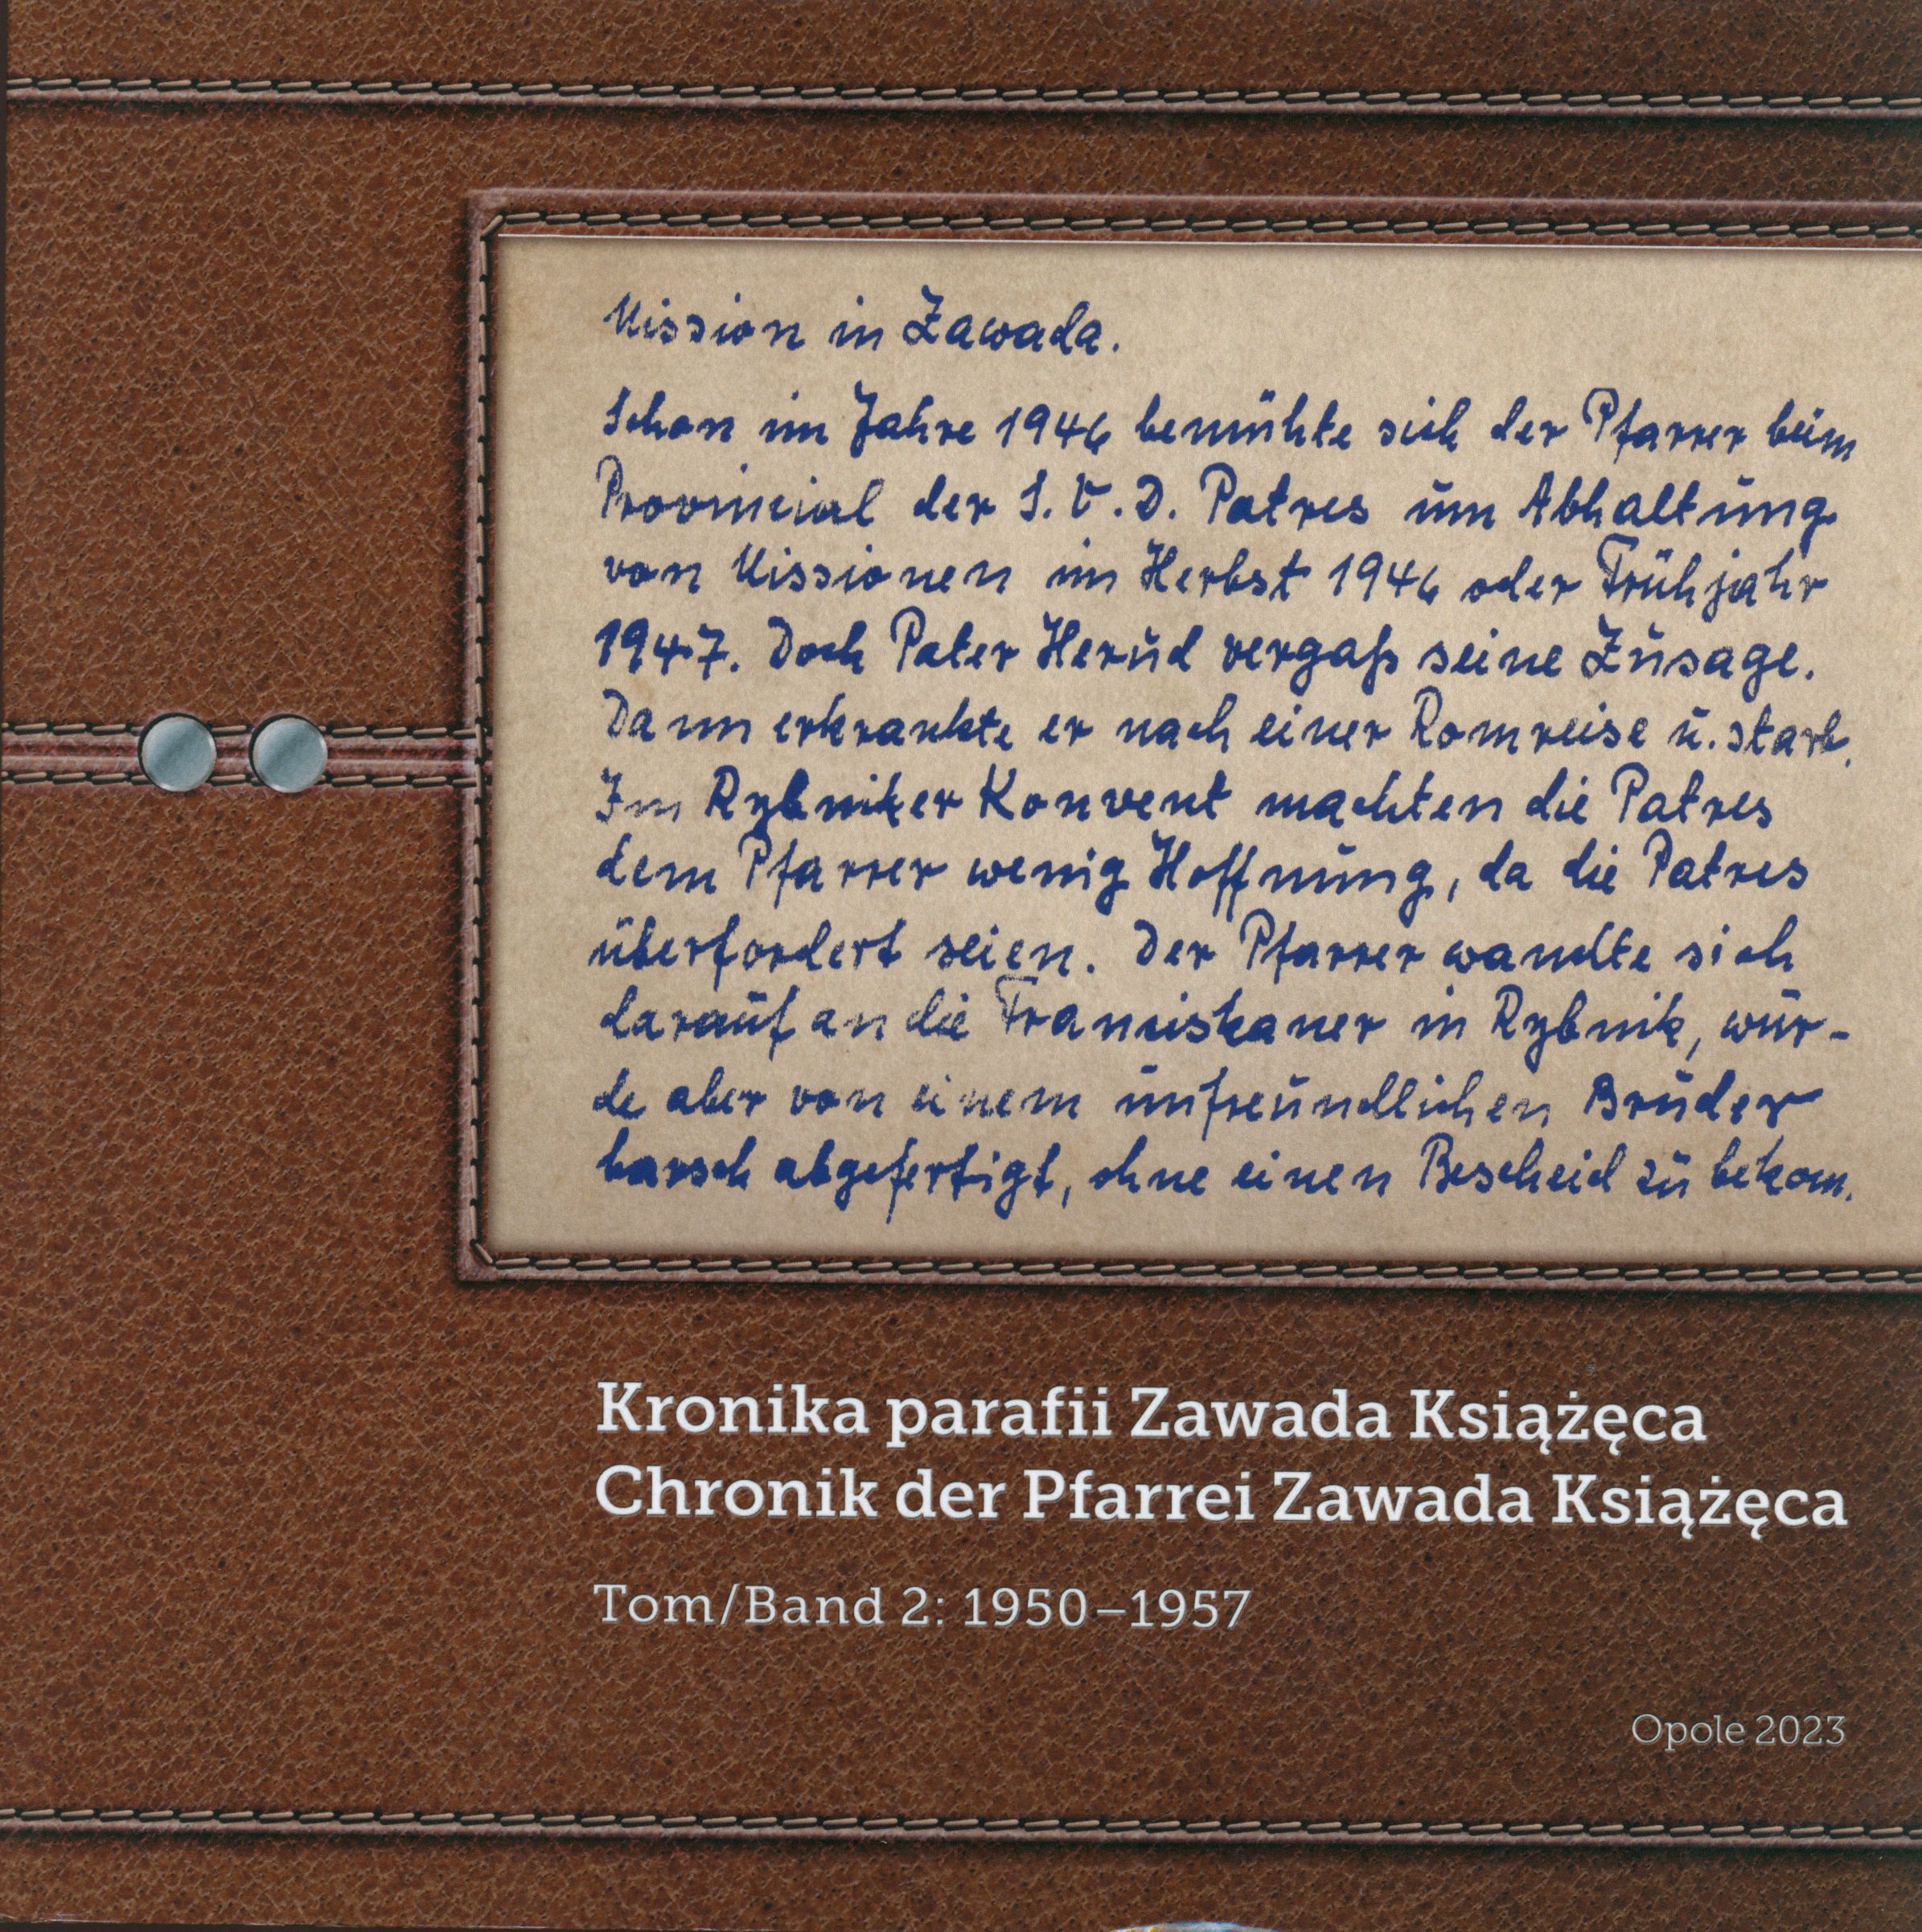 Mission in Zawada.
Schon im Jahre 1946 bemühte sich der Pfarrer beim
Provincial der S.V.D. Patres um Abhaltung
von Missionen im Herbst 1946 oder Frühjahr
1947. Doch Pater Herud vergaß seine Zusage.
Dann erkrankte er nach einer Romreise u. starb.
Im Rybniker Konvent machten die Patres
dem Pfarrer wenig Hoffnung, da die Patres
überfordert seien. Der Pfarrer wandte sich
darauf an die Franciskaner in Rybnik, wur-
de aber von einem unfreundlichen Bruder
barsch abgefertigt, ohne einen Bescheid zu bekom.
Kronika parafii Zawada Książęca
Chronik der Pfarrei Zawada Książęca
Tom/Band 2: 1950–1957
Opole 2023